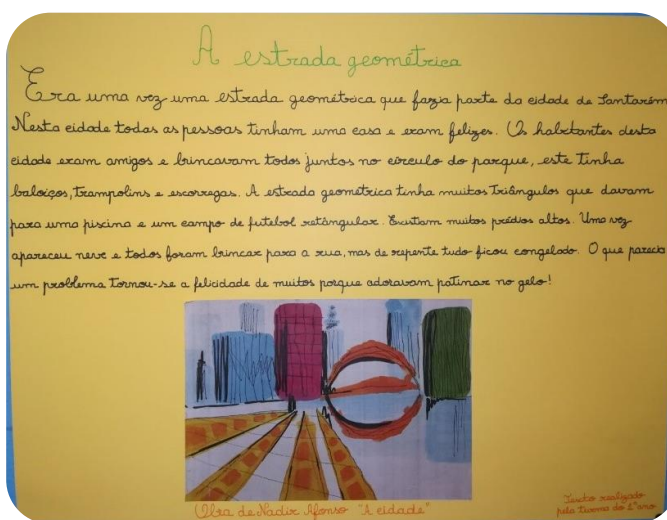 A estrada geométrica
Era uma vez uma estrada geométrica que fazia parte da cidade de Santarém
Nesta cidade todas as pessoas tinham uma casa e eram felizes. Os habitantes desta
cidade eram amigos e brincavam todos juntos no círculo do parque, este tinha
baloiços, trampolins e escorregas. A estrada geométrica tinha muitos triângulos que davam
para uma piscina e um campo de futebol retângular. Existam muitos prédios altos. Uma vez
apareceu neve e todos foram brincar para a rua, mas de repente tudo ficou congelado. O que parecia
um problema tornou-se a felicidade de muitos porque adoravam patinar no gelo!
Obra de Nadir Afonso "A cidade"
Texto realizado
pela turma do 2°ano